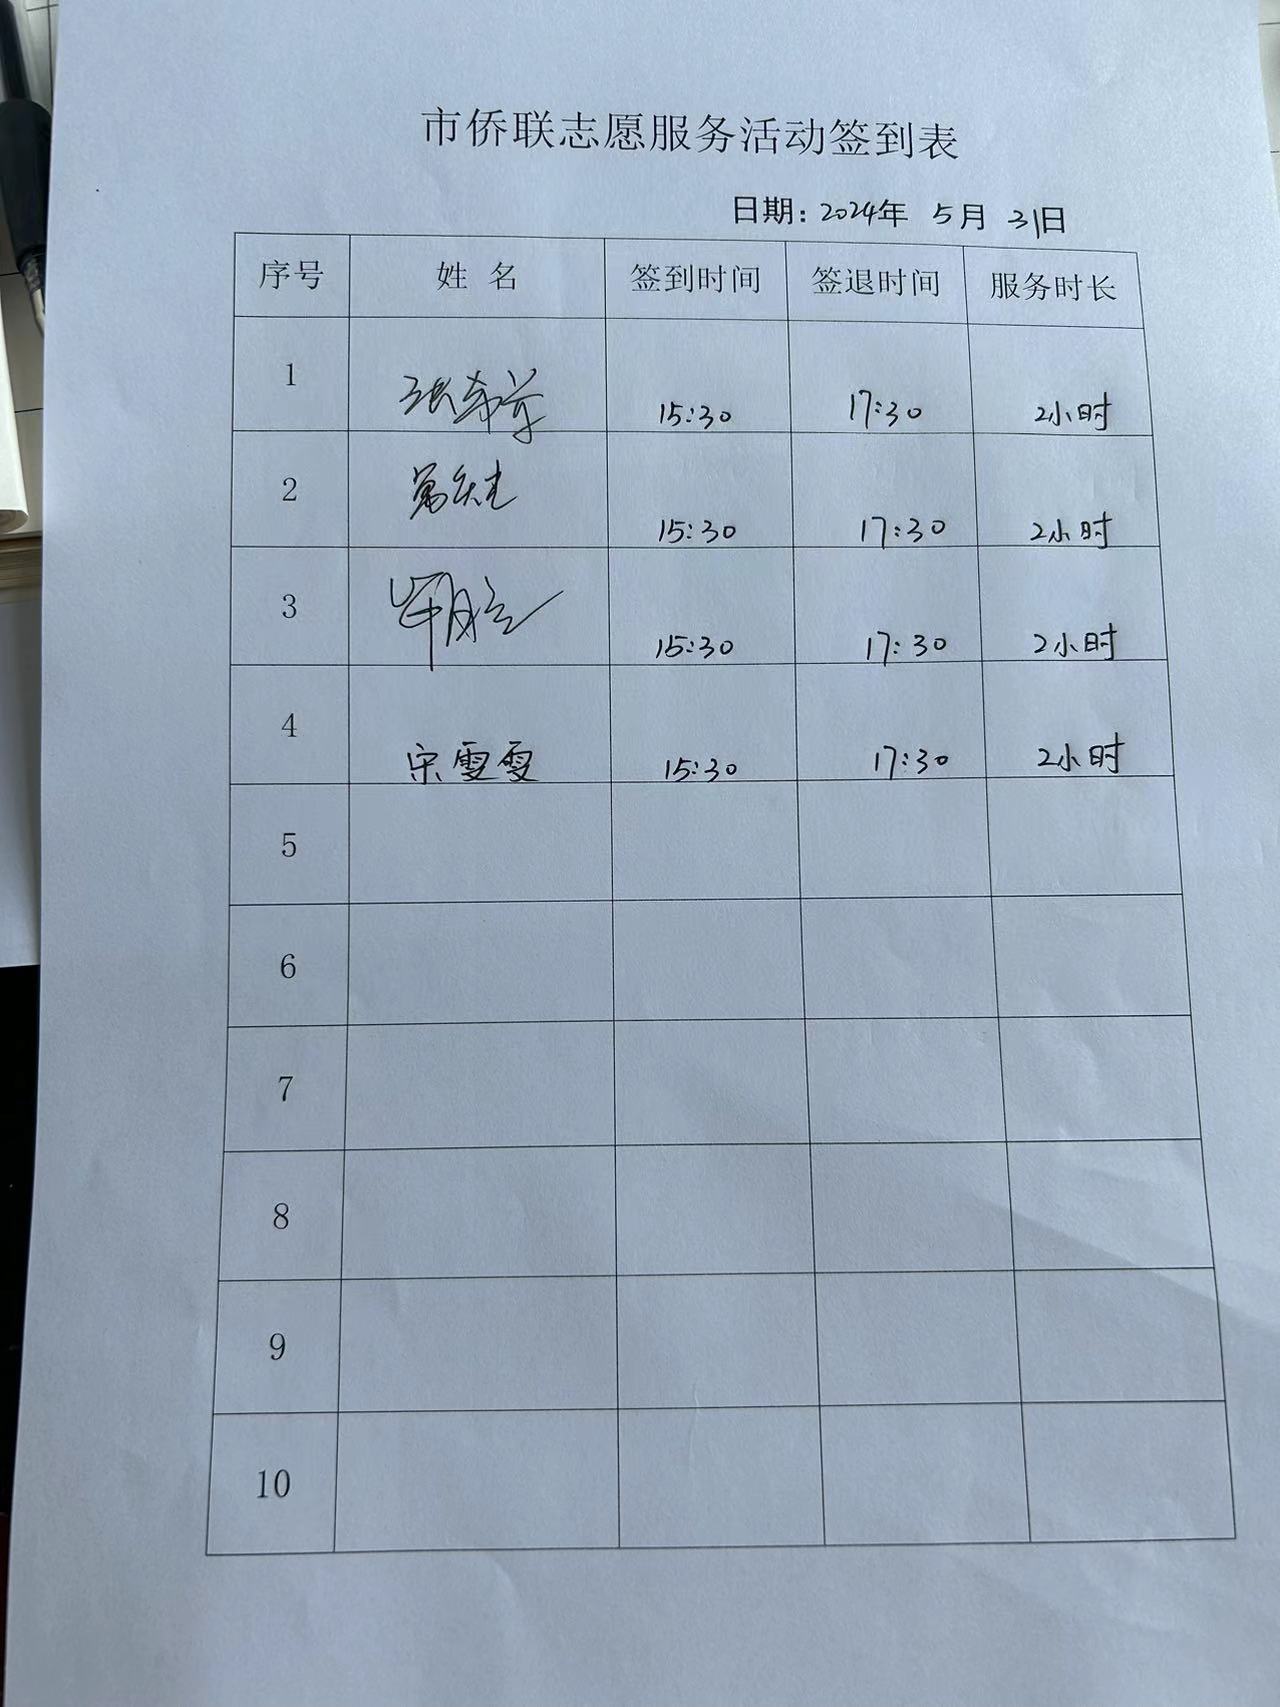 市侨联志愿服务活动签到表
日期：2024年 5月 31日
序号 姓 名 签到时间 签退时间 服务时长
1 张 15:30 17:30 2小时
2 15:30 17:30 2小时
3 15:30 17:30 2小时
4 宋雯雯 15:30 17:30 2小时
5
6
7
8
9
10